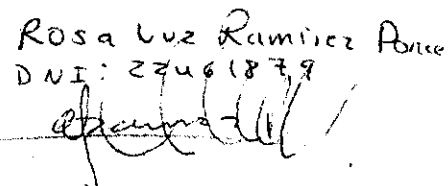 Rosa Luz Ramirez Ponce
DNI: 22461879